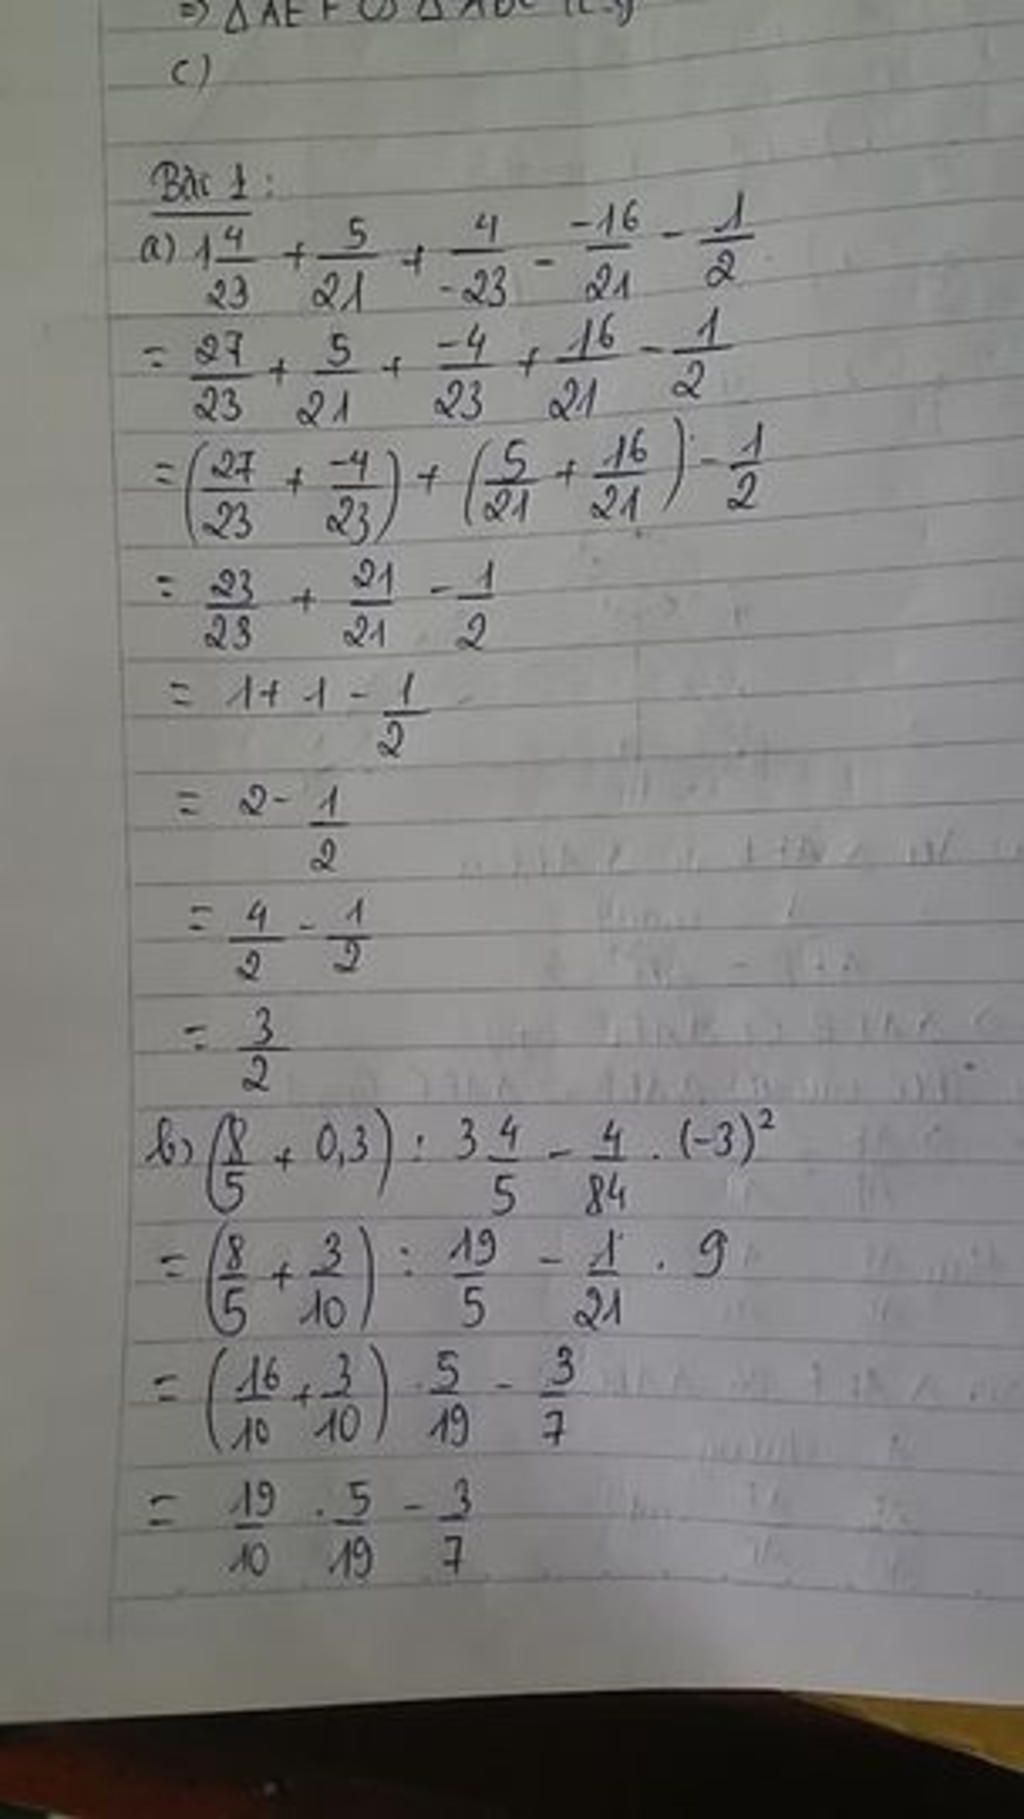 => Δ AEF ∽ Δ ABC
c)
Bài 1:
a) 1 4/23 + 5/21 + 4/-23 - -16/21 - 1/2
= 27/23 + 5/21 + -4/23 + 16/21 - 1/2
= (27/23 + -4/23) + (5/21 + 16/21) - 1/2
= 23/23 + 21/21 - 1/2
= 1 + 1 - 1/2
= 2 - 1/2
= 4/2 - 1/2
= 3/2
b) (8/5 + 0,3) : 3 4/5 - 4/84 . (-3)²
= (8/5 + 3/10) : 19/5 - 1/21 . 9
= (16/10 + 3/10) . 5/19 - 3/7
= 19/10 . 5/19 - 3/7